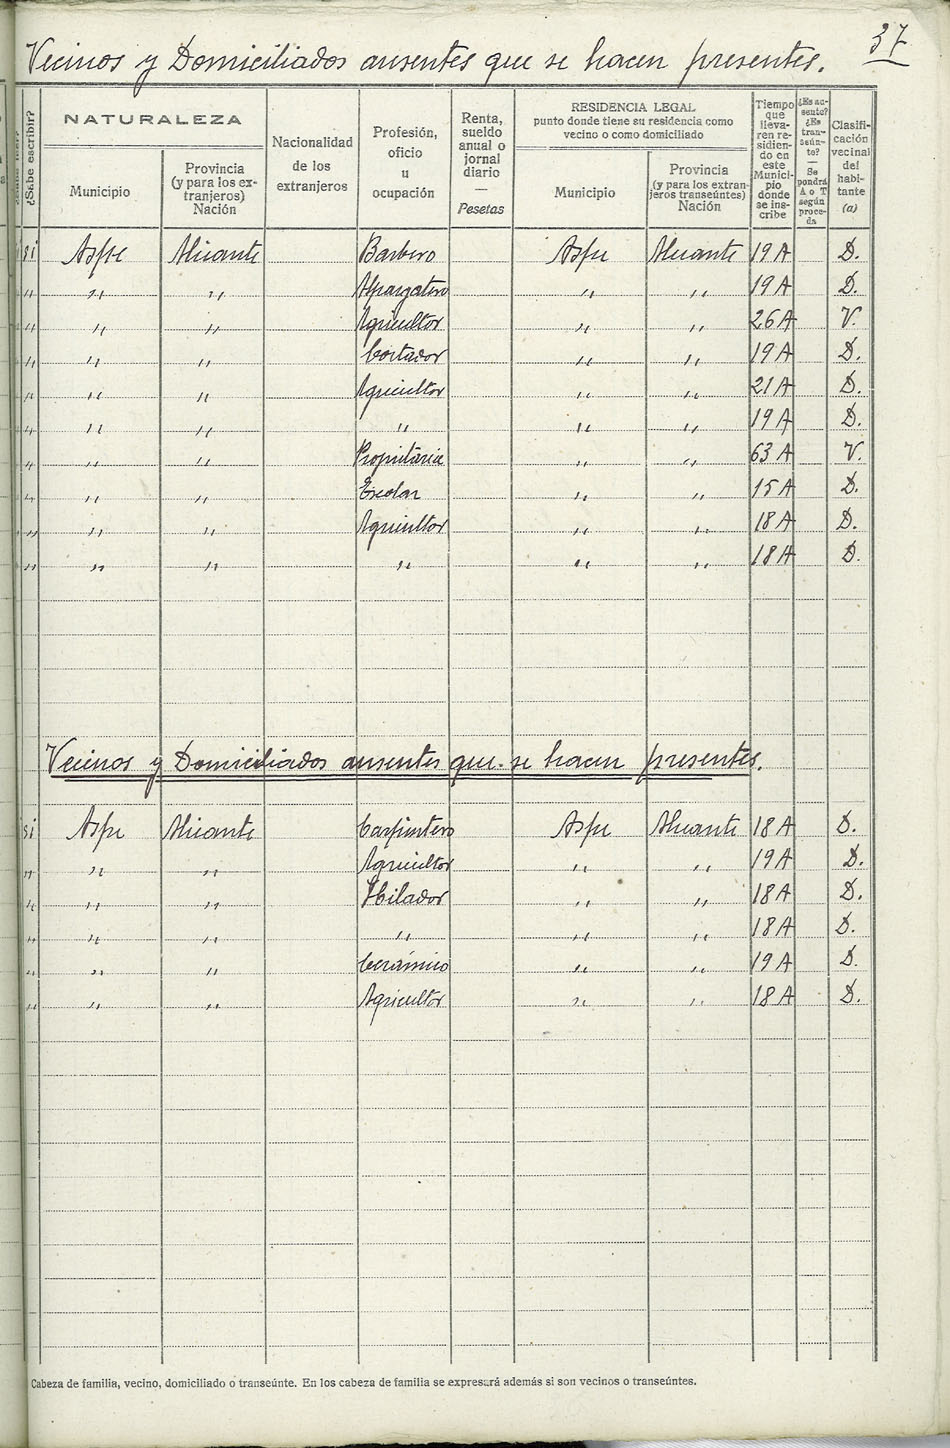 37
Vecinos y Domiciliados ausentes que se hacen presentes.
¿Sabe escribir?
NATURALEZA
Municipio
Provincia
(y para los ex-
tranjeros)
Nación
Nacionalidad
de los
extranjeros
Profesión,
oficio
u
ocupación
Renta,
sueldo
anual o
jornal
diario
—
Pesetas
RESIDENCIA LEGAL
punto donde tiene su residencia como
vecino o como domiciliado
Municipio
Provincia
(y para los extran-
jeros transeúntes)
Nación
Tiempo
que
lleva-
ren re-
sidien-
do en
este
Munici-
pio
donde
se ins-
cribe
¿Es au-
sente?
¿Es
tran-
seún-
te?
—
Se
pondrá
A o T
según
proce-
da
Clasifi-
cación
vecinal
del
habi-
tante
(a)
si Aspe Alicante Barbero Aspe Alicante 19 A D.
" " " Alpargatero " " 19 A D.
" " " Agricultor " " 26 A V.
" " " Cortador " " 19 A D.
" " " Agricultor " " 21 A D.
" " " " " " 19 A D.
" " " Propietaria " " 63 A V.
" " " Escolar " " 15 A D.
" " " Agricultor " " 18 A D.
" " " " " " 18 A D.
Vecinos y Domiciliados ausentes que se hacen presentes.
si Aspe Alicante Carpintero Aspe Alicante 18 A D.
" " " Agricultor " " 19 A D.
" " " Hilador " " 18 A D.
" " " " " " 18 A D.
" " " Cerámico " " 19 A D.
" " " Agricultor " " 18 A D.
Cabeza de familia, vecino, domiciliado o transeúnte. En los cabeza de familia se expresará además si son vecinos o transeúntes.